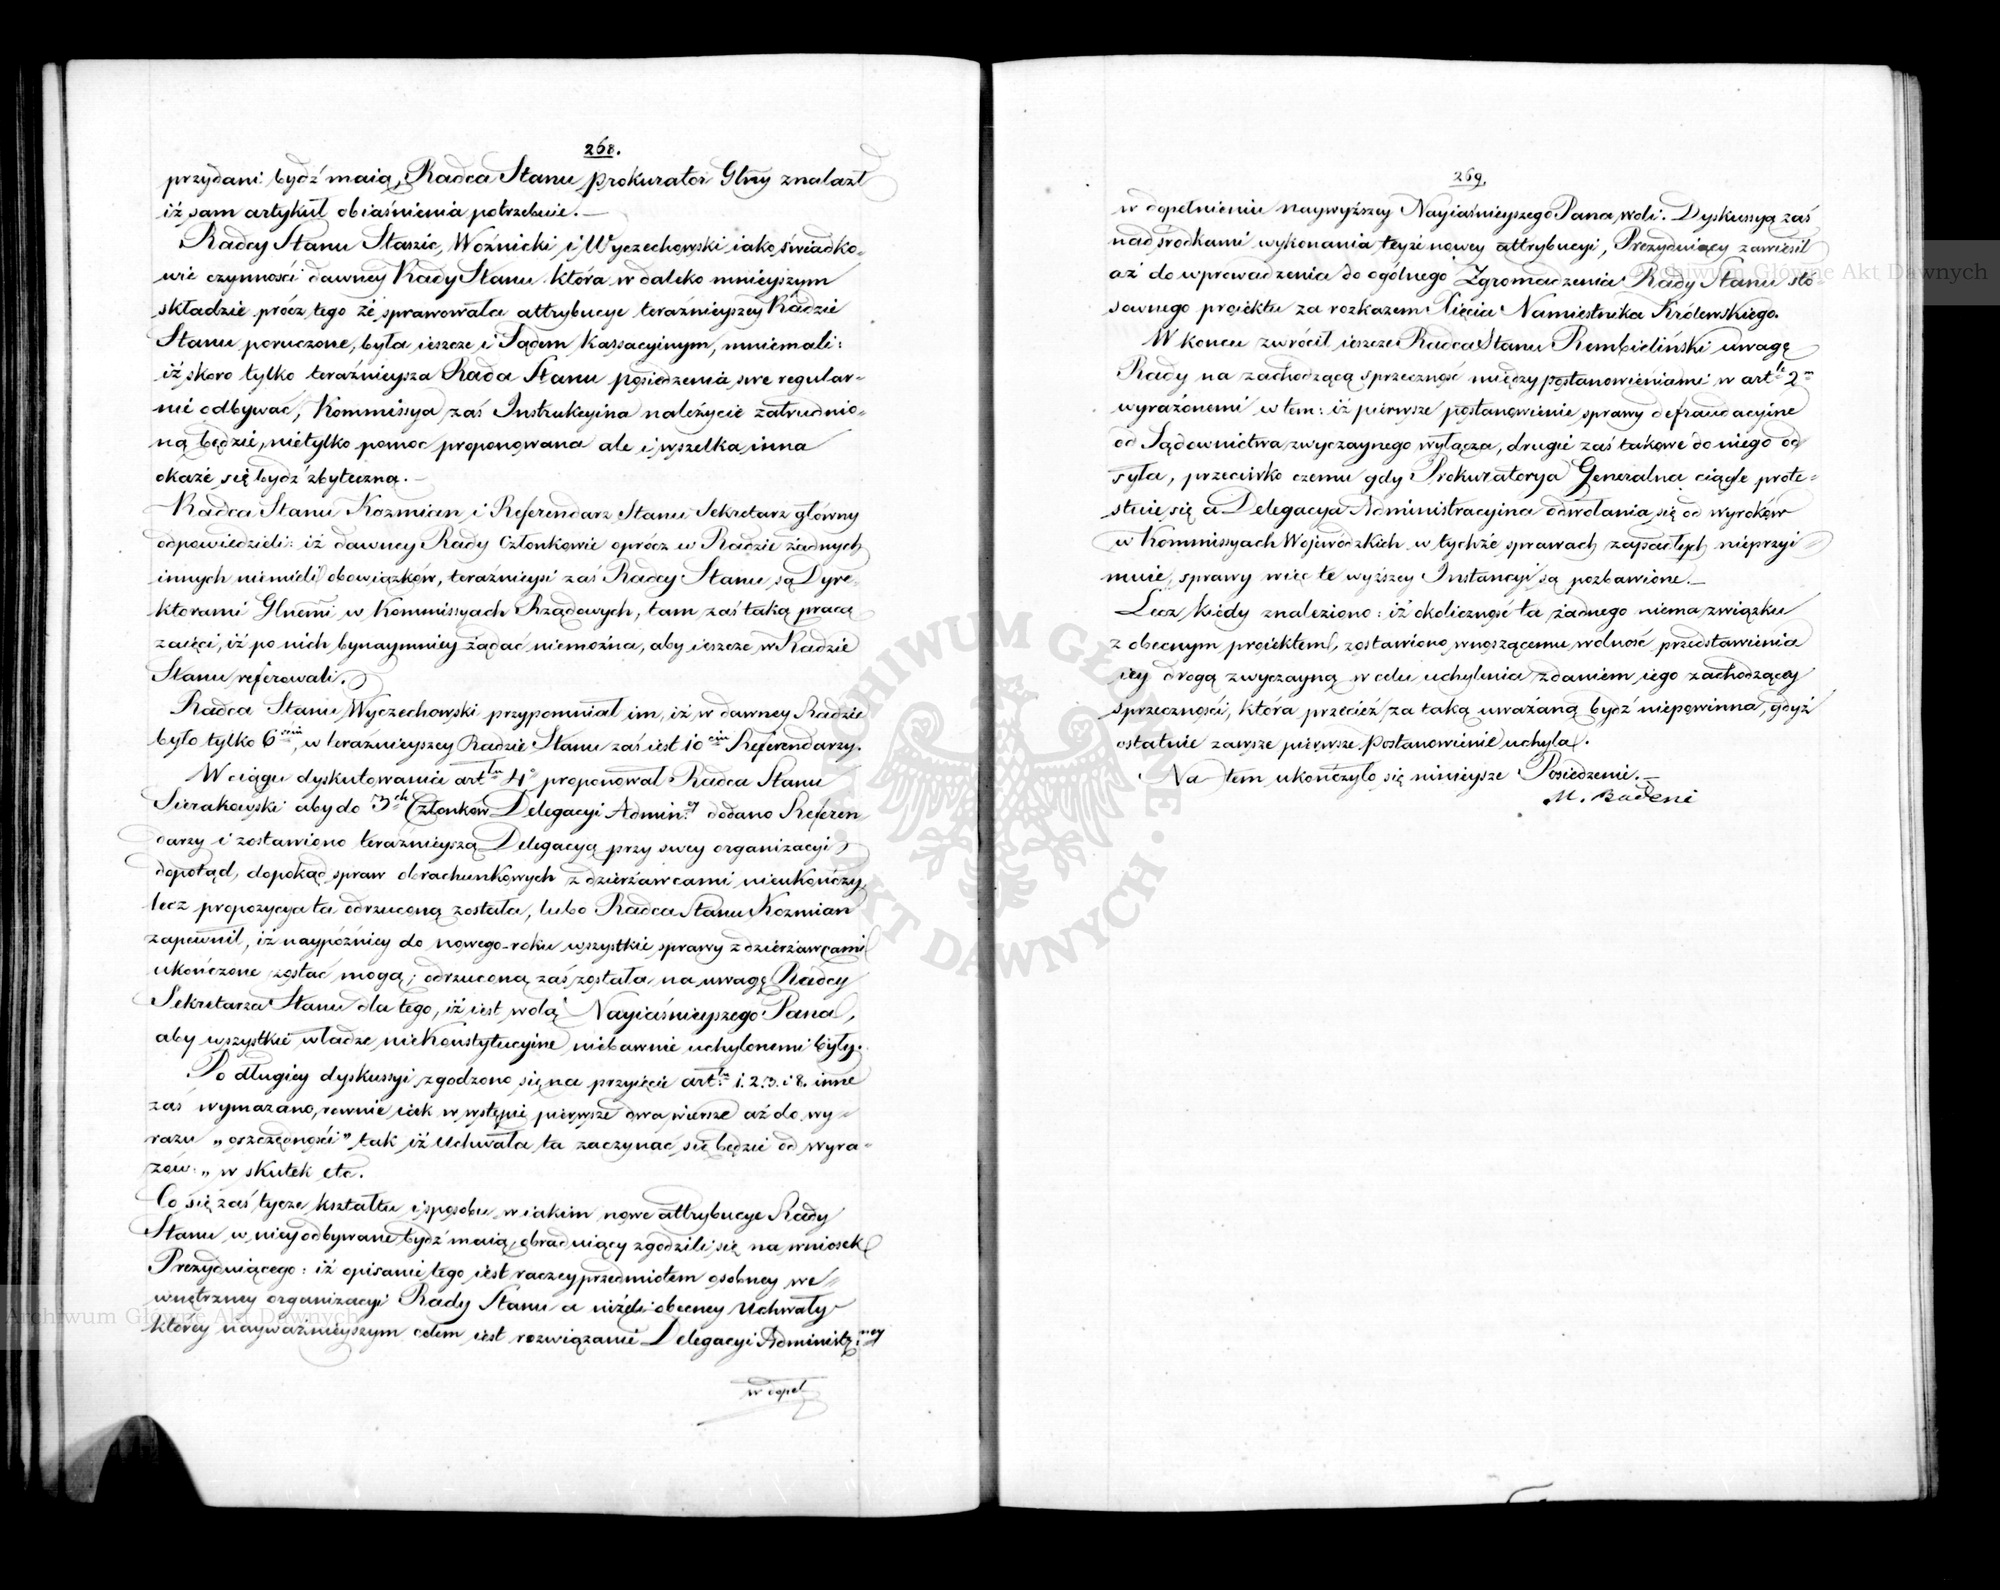 268.
przydani bydź maią, Radca Stanu Prokurator Glny znalazł
iż sam artykuł obiaśnienia potrzebuie.—
Radcy Stanu Staszic, Woźnicki i Wyczechowski iako świadko-
wie czynności dawney Rady Stanu która w daleko mnieyszym
składzie prócz tego że sprawowała attrybucye teraźnieyszey Radzie
Stanu poruczone, była ieszcze i Sądem Kassacyinym, mniemali:
iż skoro tylko teraźnieysza Rada Stanu posiedzenia swe regular-
nie odbywać, Kommissya zaś Instrukcyina należycie zatrudnio-
ną będzie, nietylko pomoc proponowana ale i wszelka inna
okaże się bydź zbyteczną.—
Radca Stanu Kozmian i Referendarz Stanu Sekretarz główny
odpowiedzieli: iż dawney Rady Członkowie oprócz w Radzie żadnych
innych niemieli obowiązków, teraźnieysi zaś Radcy Stanu są Dyre-
ktorami Glnemi w Kommissyach Rządowych, tam zaś taką pracą
zaięci, iż po nich bynaymniey żądać niemożna, aby ieszcze w Radzie
Stanu referowali.
Radca Stanu Wyczechowski przypomniał im, iż w dawney Radzie
było tylko 6ciu, w teraźnieyszey Radzie Stanu zaś iest 10ciu Referendarzy.
W ciągu dyskutowania artłu 4o proponował Radca Stanu
Sierakowski aby do 3ch Członków Delegacyi Admin:ey dodano Referen
darzy i zostawiono teraźnieyszą Delegacyą przy swey organizacyi
dopotąd, dopokąd spraw obrachunkowych z dzierżawcami nieukończy,
lecz propozycya ta odrzuconą została, lubo Radca Stanu Kozmian
zapewnił, iż naypóźniey do nowego-roku wszystkie sprawy z dzierżawcami
ukończone zostać mogą; odrzuconą zaś została na uwagę Radcy
Sekretarza Stanu dla tego, iż iest wolą Nayiaśnieyszego Pana,
aby wszystkie władze nieKonstytucyine niebawnie uchylonemi były.
Po długiey dyskussyi zgodzono się na przyięcie artłu 1. 2. 3. i 8. inne
zaś wymazano, rownie iak w wstępie pierwsze dwa wiersze aż do wy-
razu „oszczędności” tak iż Uchwała ta zaczynać się będzie od wyra-
zów: „w skutek etc.
Co się zaś tycze kształtu i sposobu w iakim nowe attrybucye Rady
Stanu w niey odbywane bydź maią, obraduiący zgodzili się na wniosek
Prezyduiącego: iż opisanie tego iest raczey przedmiotem osobney we-
wnętrzney organizacyi Rady Stanu a niżeli obecney Uchwały
którey nayważnieyszym celem iest rozwiązanie Delegacyi Administr:ney
w dopeł
269.
w dopełnieniu naywyższey Nayiaśnieyszego Pana woli. Dyskussyą zaś
nad środkami wykonania teyże nowey attrybucyi, Prezyduiący zawiesił
aż do wprowadzenia do ogólnego Zgromadzenia Rady Stanu sto-
sownego proiektu za rozkazem Xięcia Namiestnika Królewskiego.
W koncu zwrócił ieszcze Radca Stanu Rembieliński uwagę
Rady na zachodzącą sprzeczność między postanowieniami w artle 2m
wyrażonemi w tem: iż pierwsze postanowienie sprawy defraudacyine
od Sądownictwa zwyczaynego wyłącza, drugie zaś takowe do niego od
syła, przeciwko czemu gdy Prokuratorya Generalna ciągle prote-
stuie się a Delegacya Administracyina odwołania się od wyroków
w Kommissyach Wojewódzkich w tychże sprawach zapadłych nieprzyi-
muie, sprawy więc te wyższey Instancyi są pozbawione.—
Lecz kiedy znaleziono: iż okoliczność ta żadnego niema związku
z obecnym proiektem, zostawiono wnoszącemu wolność przedstawienia
iey drogą zwyczayną w celu uchylenia zdaniem iego zachodzącey
sprzeczności, która przecież za taką uważaną bydź niepowinna, gdyż
ostatnie zawsze pierwsze Postanowienie uchyla.
Na tem ukończyło się ninieysze Posiedzenie.—
M. Badeni
Archiwum Główne Akt Dawnych
Archiwum Główne Akt Dawnych
ARCHIWUM GŁÓWNE AKT DAWNYCH